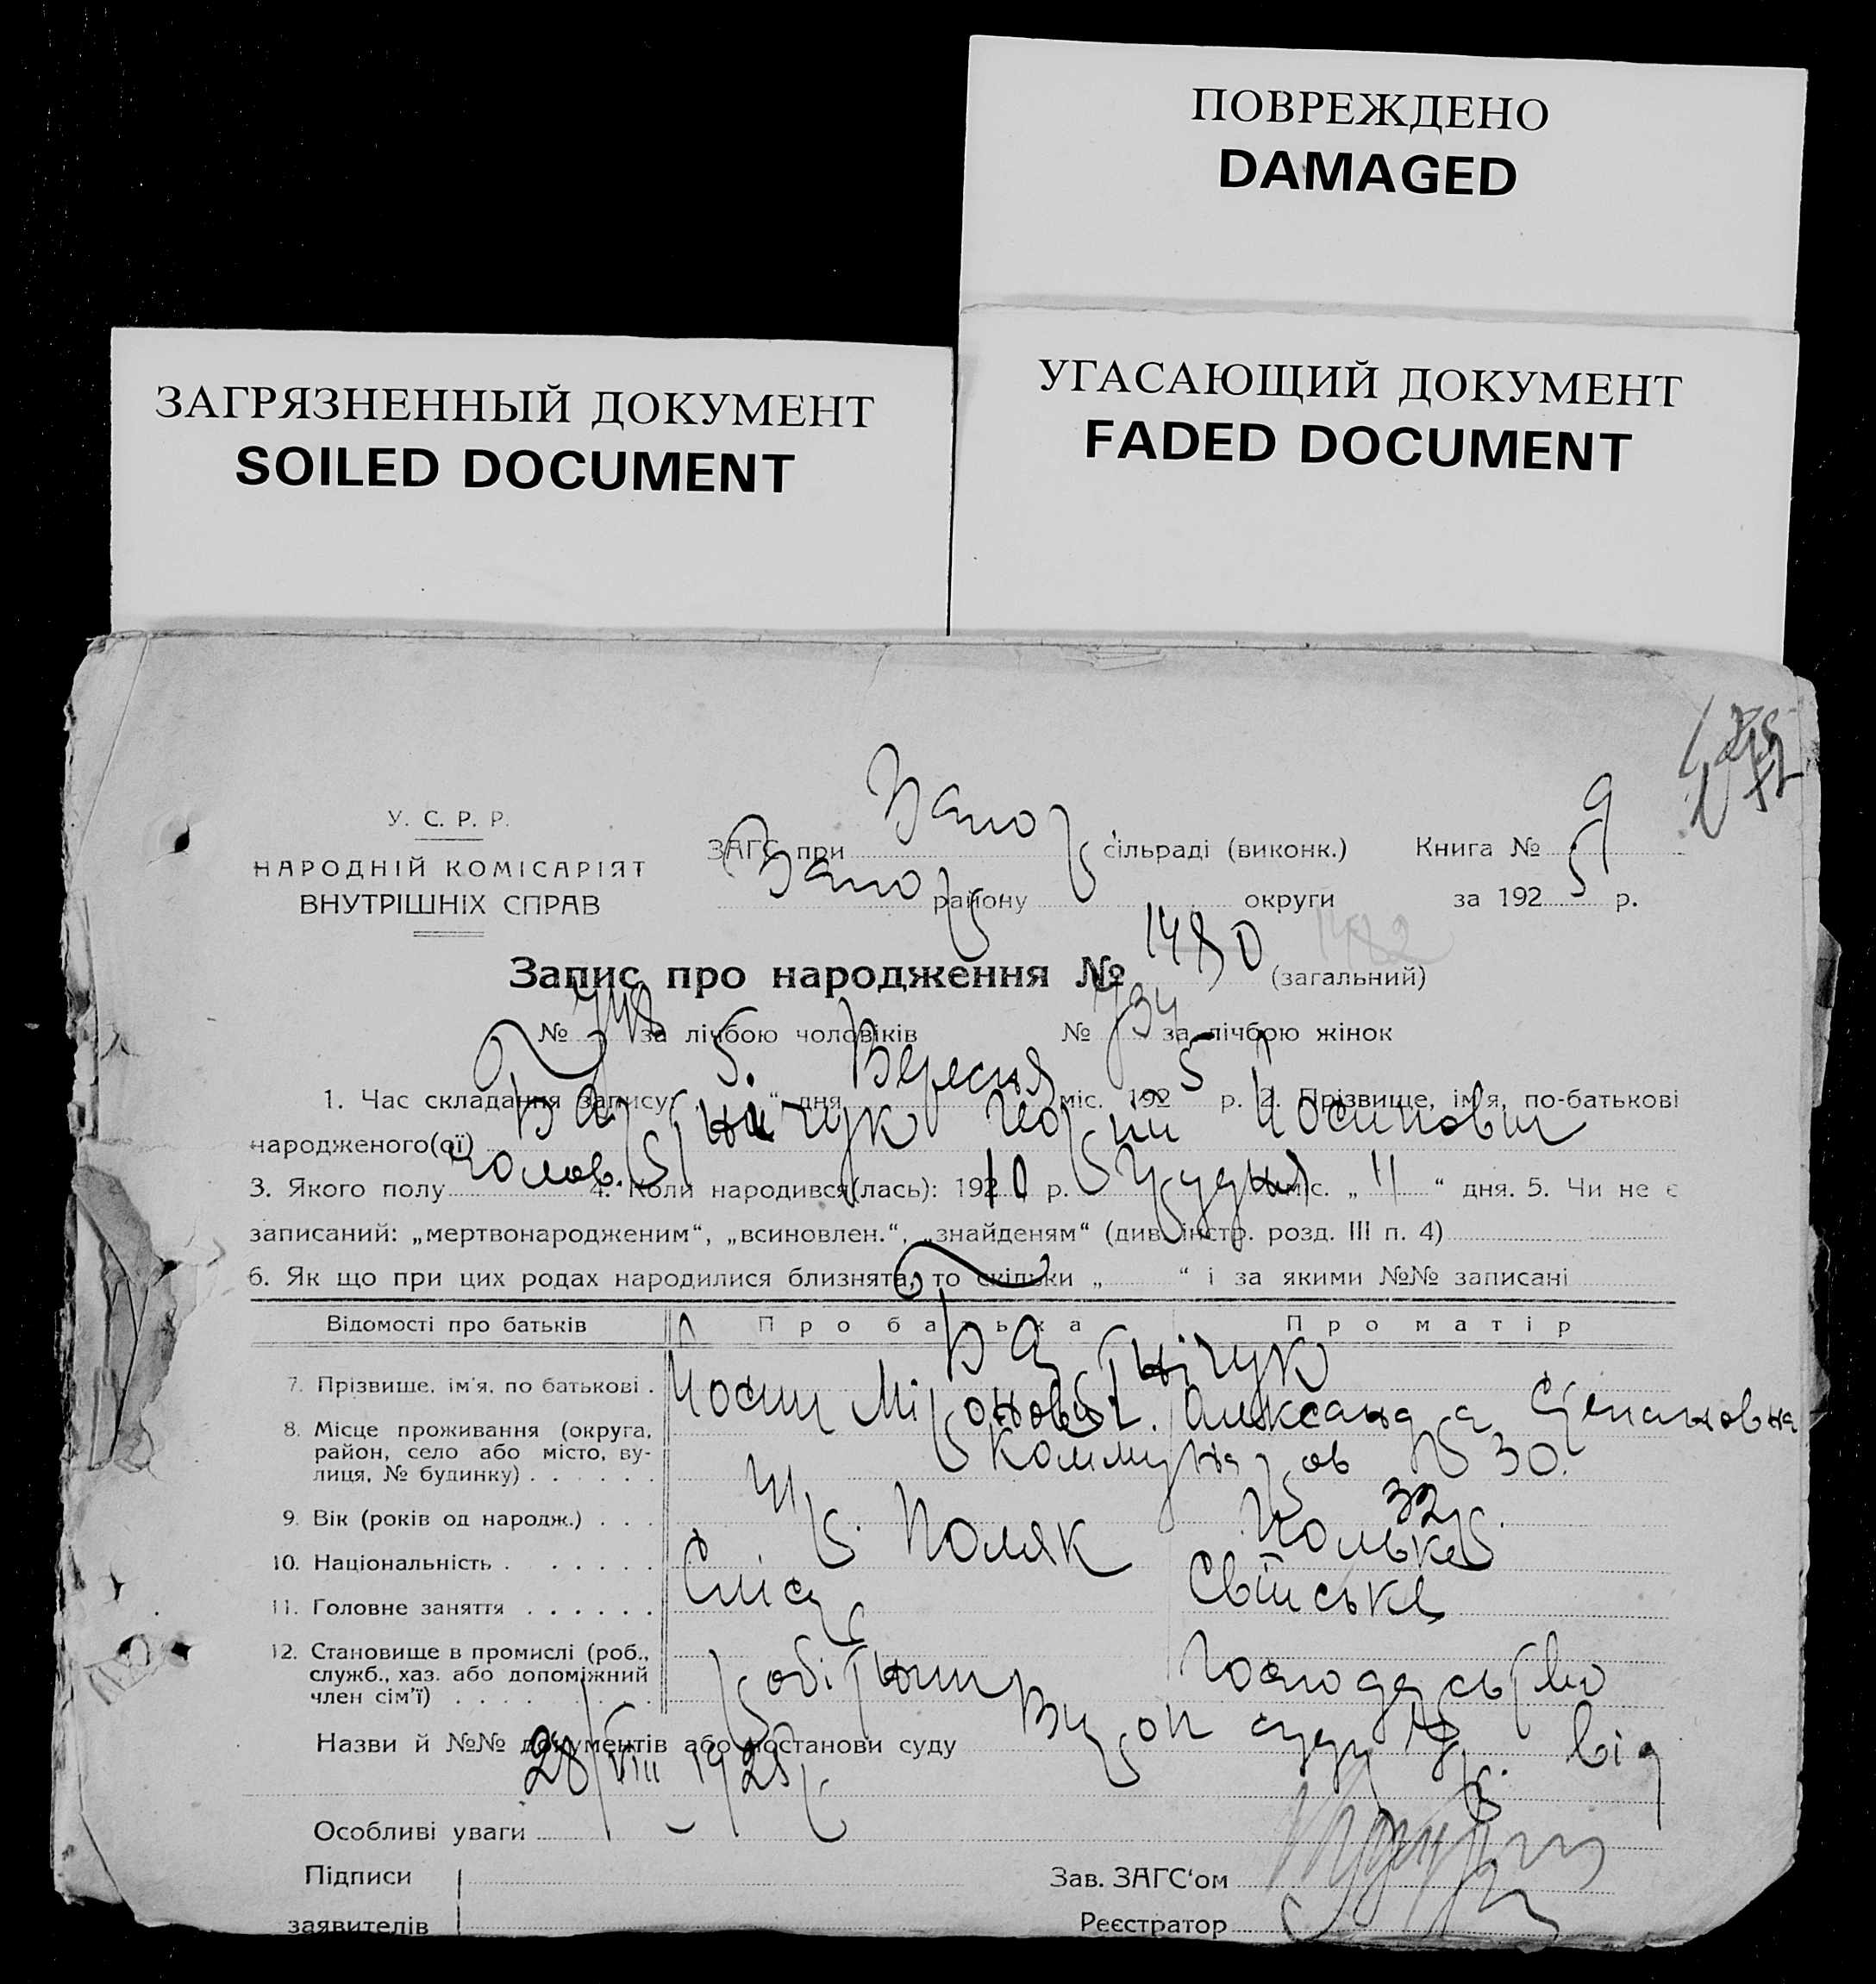 ПОВРЕЖДЕНО
DAMAGED
ЗАГРЯЗНЕННЫЙ ДОКУМЕНТ
SOILED DOCUMENT
УГАСАЮЩИЙ ДОКУМЕНТ
FADED DOCUMENT
У. С. Р. Р.
НАРОДНІЙ КОМІСАРІЯТ
ВНУТРІШНІХ СПРАВ
ЗАГС при Запор сільраді (виконк.) Книга № 9
Запор району округи за 1925 р.
Запис про народження № 1480 (загальний) 1482
№ 748 за лічбою чоловіків № 734 за лічбою жінок
1. Час складання запису: „5“ дня Вересня міс. 1925 р. 2. Прізвище, ім'я, по-батькові
народженого(ої) Йосипович
3. Якого полу Чолов. 4. Коли народився(лась): 1910 р. Грудня міс. „11“ дня. 5. Чи не є
записаний: „мертвонародженим“, „всиновлен.“, „знайденям“ (див. інстр. розд. III п. 4)
6. Як що при цих родах народилися близнята, то скільки „ “ і за якими №№ записані
Відомості про батьків Про батька Про матір
7. Прізвище, ім'я, по батькові . Йосип Міронович. Александра Степановна
8. Місце проживання (округа,
район, село або місто, ву-
лиця, № будинку) . . . . . . Коммунаров № 30.
9. Вік (років од народж.) . . . 32 р.
10. Національність . . . . . . Поляк Полька
11. Головне заняття . . . . . . Слісар Свійське
12. Становище в промислі (роб.,
служб., хаз. або допоміжний
член сім'ї) . . . . . . . . . робітник господарство
Назви й №№ документів або постанови суду суду від
28/VIII 1925 р.
Особливі уваги
Підписи Зав. ЗАГС'ом
заявителів Реєстратор